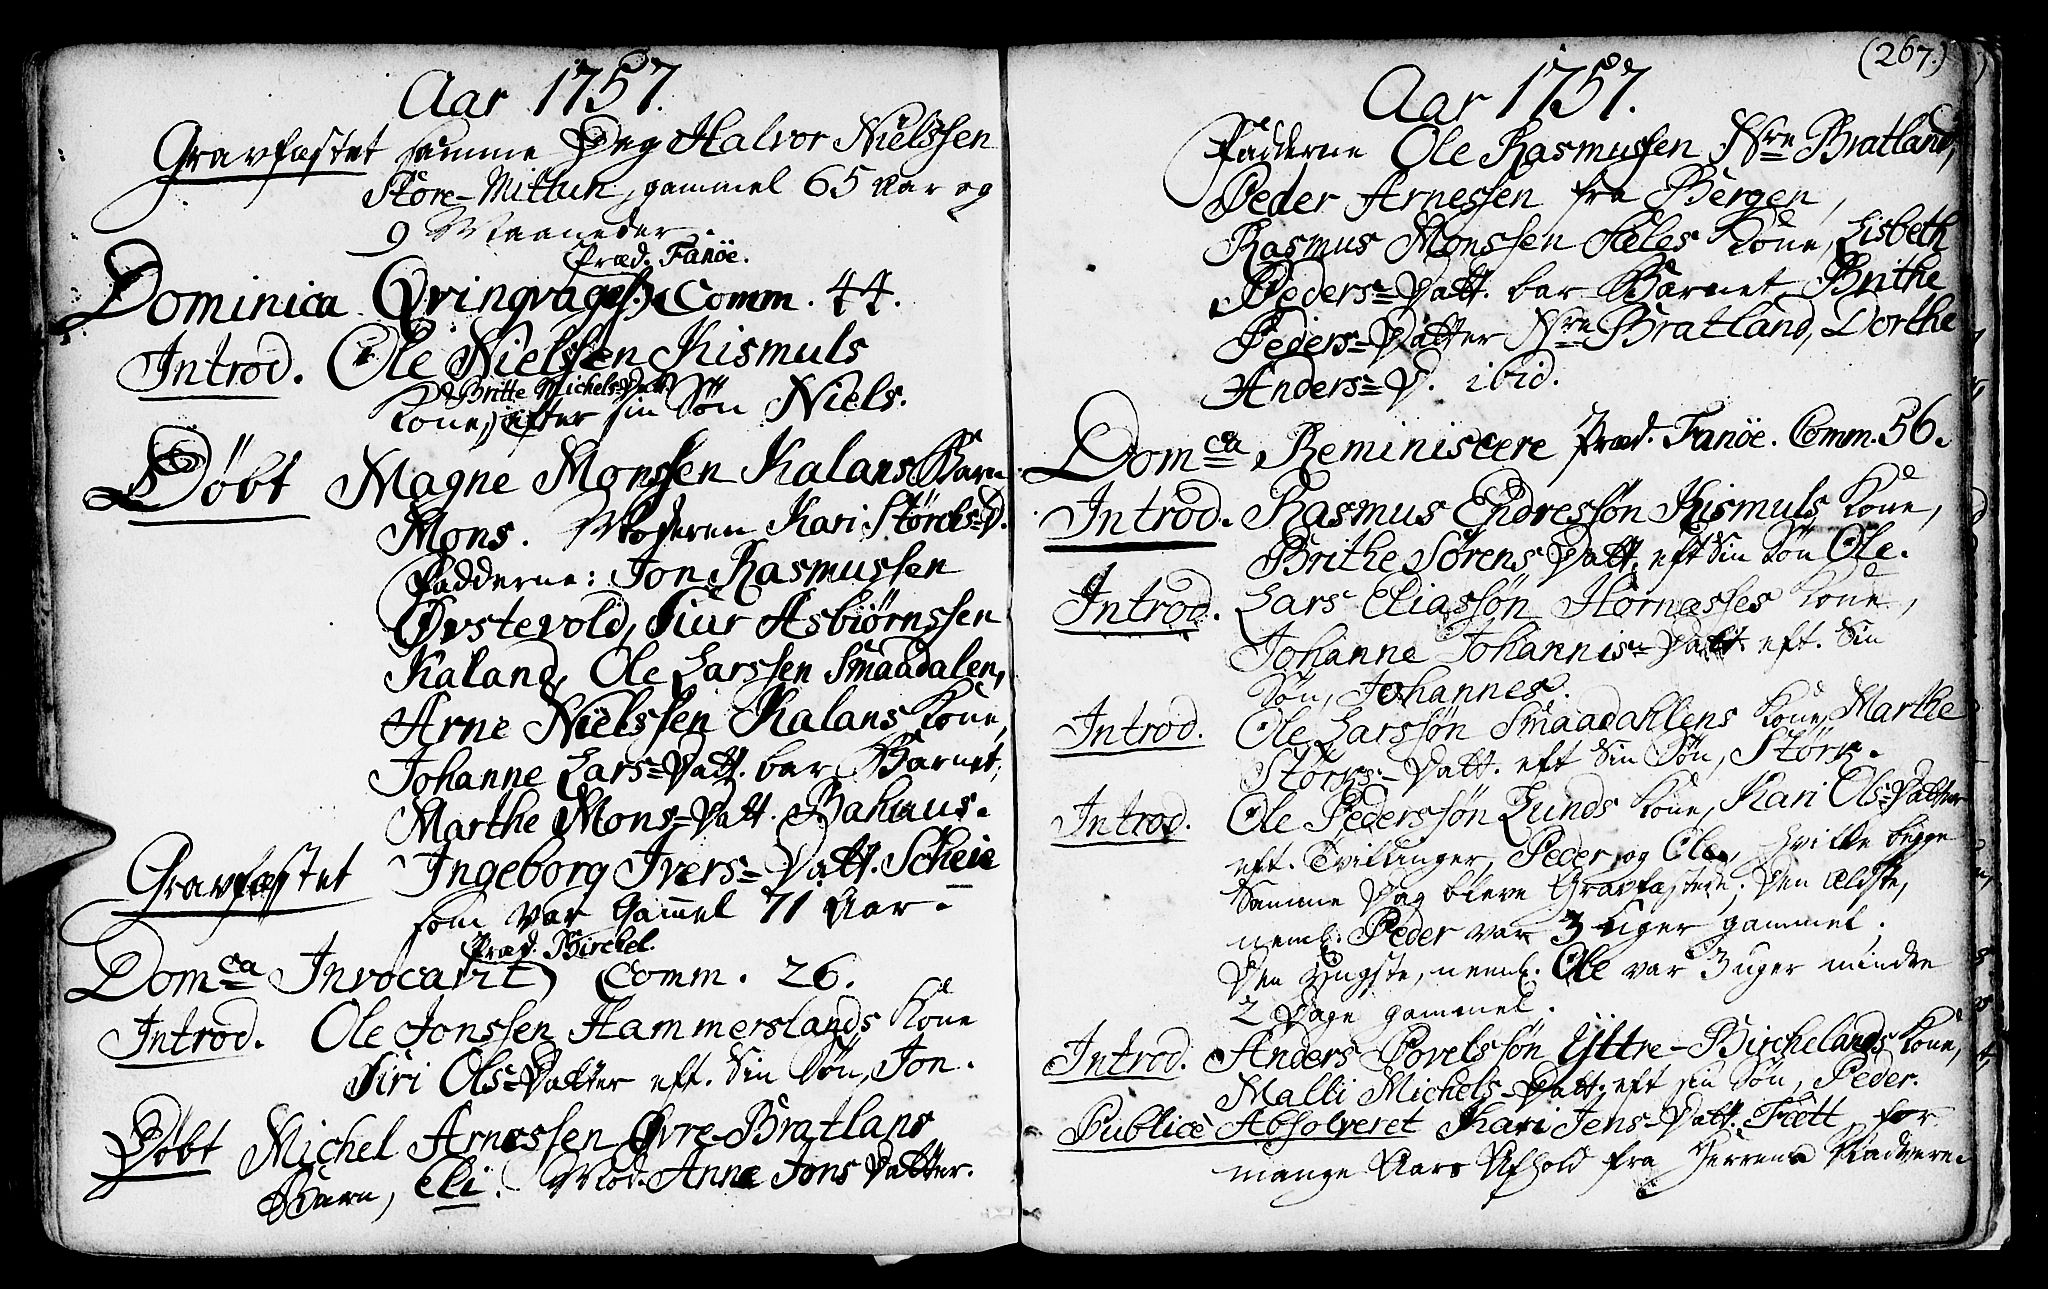 Aar 1757.
Gravfæstet samme Dag Halvor Nielssen
Store-Mittun, gammel 65 Aar og
9 Maaneder.
Præd. Fanöe.
Dominica Qvinqvages: Comm. 44.
Introd. Ole Nielssen Kismuls
Britte Michels-Datt
Kone, efter sin Søn Niels.
Døbt Magne Monssen Kalans Barn
Mons. Moderen Kari Störcks-D.
Fadderne: Jon Rasmussen
Øvstevold, Siur Asbiørnssen
Kaland, Ole Larssen Smaadalen,
Arne Nielssen Kalans Kone,
Johanne Lars-Datt. bar Barnet,
Marthe Mons-Datt. Bahaus.
Gravfæstet Ingeborg Ivers-Datt. Scheie
som var Gamel 71 Aar.
Præd. Birckel.
Dom:ca Invocavit Comm. 26.
Introd. Ole Jonssen Hammerslands Kone
Siri Ols-Datter eft. Sin Søn, Jon.
Døbt Michel Arnessen Øvre-Bratlans
Barn, Eli. Mod. Anne Jons Datter.
(267.)
Aar 1757.
Fadderne Ole Rasmussen N:re Bratland,
Peder Arnessen fra Bergen,
Rasmus Monssen Seles Kone, Lisbeth
Peders-Datt. bar Barnet, Brithe
Peders-Datter N:re Bratland, Dorthe
Anders-D. ibid.
Dom:ca Reminiscere Præd. Fanöe. Comm. 56.
Introd. Rasmus Endressøn Kismuls Kone,
Brithe Sörens Datt. eft Sin Søn Ole.
Introd. Lars Eliassøn Hornæsses Kone,
Johanne Johannis-Datt eft. Sin
Søn, Johannes.
Introd. Ole Larssøn Smaadahlens Kone, Marthe
Størks-Datt. eft Sin Søn, Størk.
Introd. Ole Pederssøn Lunds Kone, Kari Ols-Datter
eft. Tvillinger, Peder og Ole, hvilke begge
Samme Dag bleve Gravfæstede. Den Ældste,
neml. Peder var 3 uger gammel.
Den yngste, neml. Ole var 3 uger mindre
2 Dage gammel.
Introd. Anders Povelssøn Yttre-Birchelands Kone,
Malli Michels-Datt. eft sin Søn, Peder.
Publicè Absolveret Kari Jens-Datt. Tiett for
mange Aars Afhold fra Herrens Nadvere.